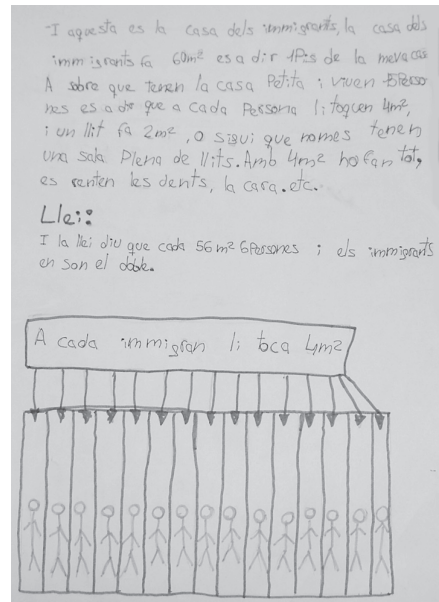 -I aquesta es la casa dels immigrants, la casa dels
immigrants fa 60m² es a dir 1Pis de la meva casa
A sobre que tenen la casa Petita i viuen 15Perso
nes es a dir que a cada Persona li toquen 4m²,
i un llit fa 2m², o sigui que nomes tenen
una sala Plena de llits. Amb 4m² ho fan tot,
es renten les dents, la cara. etc.
Llei:
I la llei diu que cada 56m² 6Persones i els immigrants
en son el doble.
A cada immigran li toca 4m²